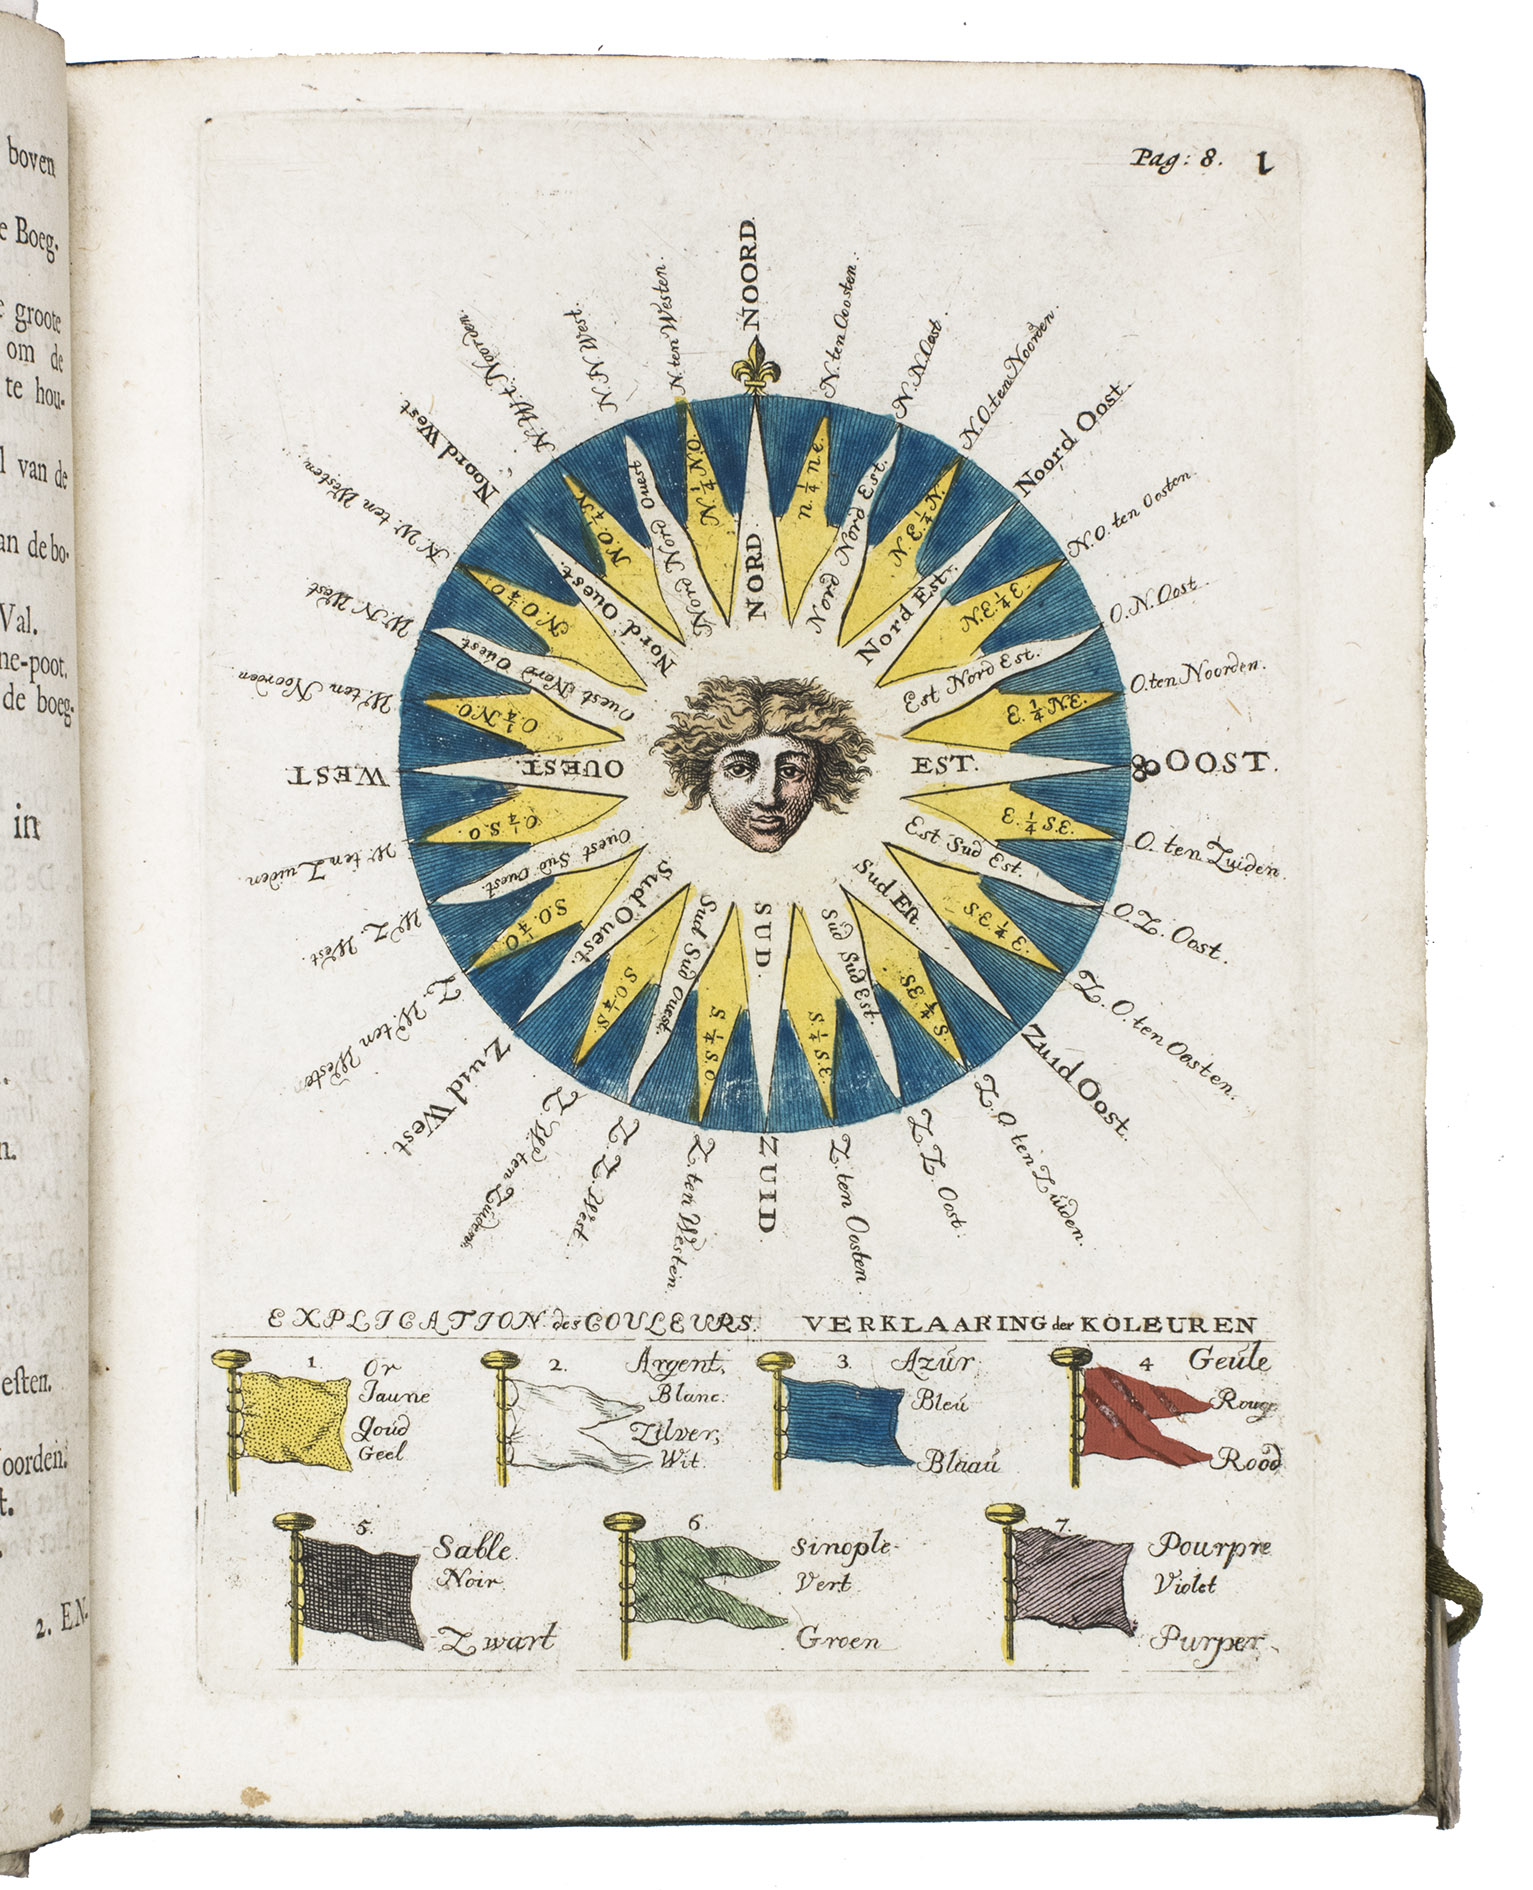 boven
e Boeg.
groote
om de
te hou-
l van de
an de bo-
Val.
ne-poot.
de boeg-
in
n.
esten.
oorden.
t.
2. EN-
Pag: 8. 1
NOORD
N. ten Oosten.
N. N. Oost.
N. O. ten Noorden.
Noord Oost.
N. O. ten Oosten.
O. N. Oost.
O. ten Noorden.
OOST.
O. ten Zuiden.
O. Z. Oost.
Z. O. ten Oosten.
Zuid Oost.
Z. O. ten Zuiden.
Z. Z. Oost.
Z. ten Oosten.
ZUID
Z. ten Westen.
Z. Z. West.
Z. W. ten Zuiden.
Zuid West.
Z. W. ten Westen
W. Z. West.
W. ten Zuiden.
WEST
W. ten Noorden
W. N. West
N. W. ten Westen.
Noord West.
N. W. t. Noorden.
N. N. West.
N. ten Westen.
NORD
n 1/4 ne.
Nord Nord Est.
N. E. 1/4 N.
Nord Est.
N. E. 1/4 E.
Est Nord Est.
E. 1/4 N E.
EST.
E. 1/4 S E.
Est Sud Est.
S. E. 1/4 E.
Sud Est.
S. E. 1/4 S.
Sud Sud Est.
S. 1/4 S. E.
SUD.
S. 1/4 S. O.
Sud Sud Ouest.
S. O. 1/4 S.
Sud Ouest.
S. O. 1/4 O.
Ouest Sud Ouest.
O. 1/4 S. O.
OUEST.
O. 1/4 N. O.
Ouest Nord Ouest
N. O. 1/4 O.
Nord Ouest.
N. O. 1/4 N
Nord Nord Ouest
N 1/4 N. O.
EXPLICATION des COULEURS. VERKLAARING der KOLEUREN
1. Or
Jaune
Goud
Geel
2. Argent,
Blanc.
Zilver,
Wit.
3. Azúr
Bleú
Blaaú
4 Geúle
Roug
Rood
5. Sable.
Noir
Zwart
6. Sinople
Vert
Groen
7. Pourpre
Violet
Purper